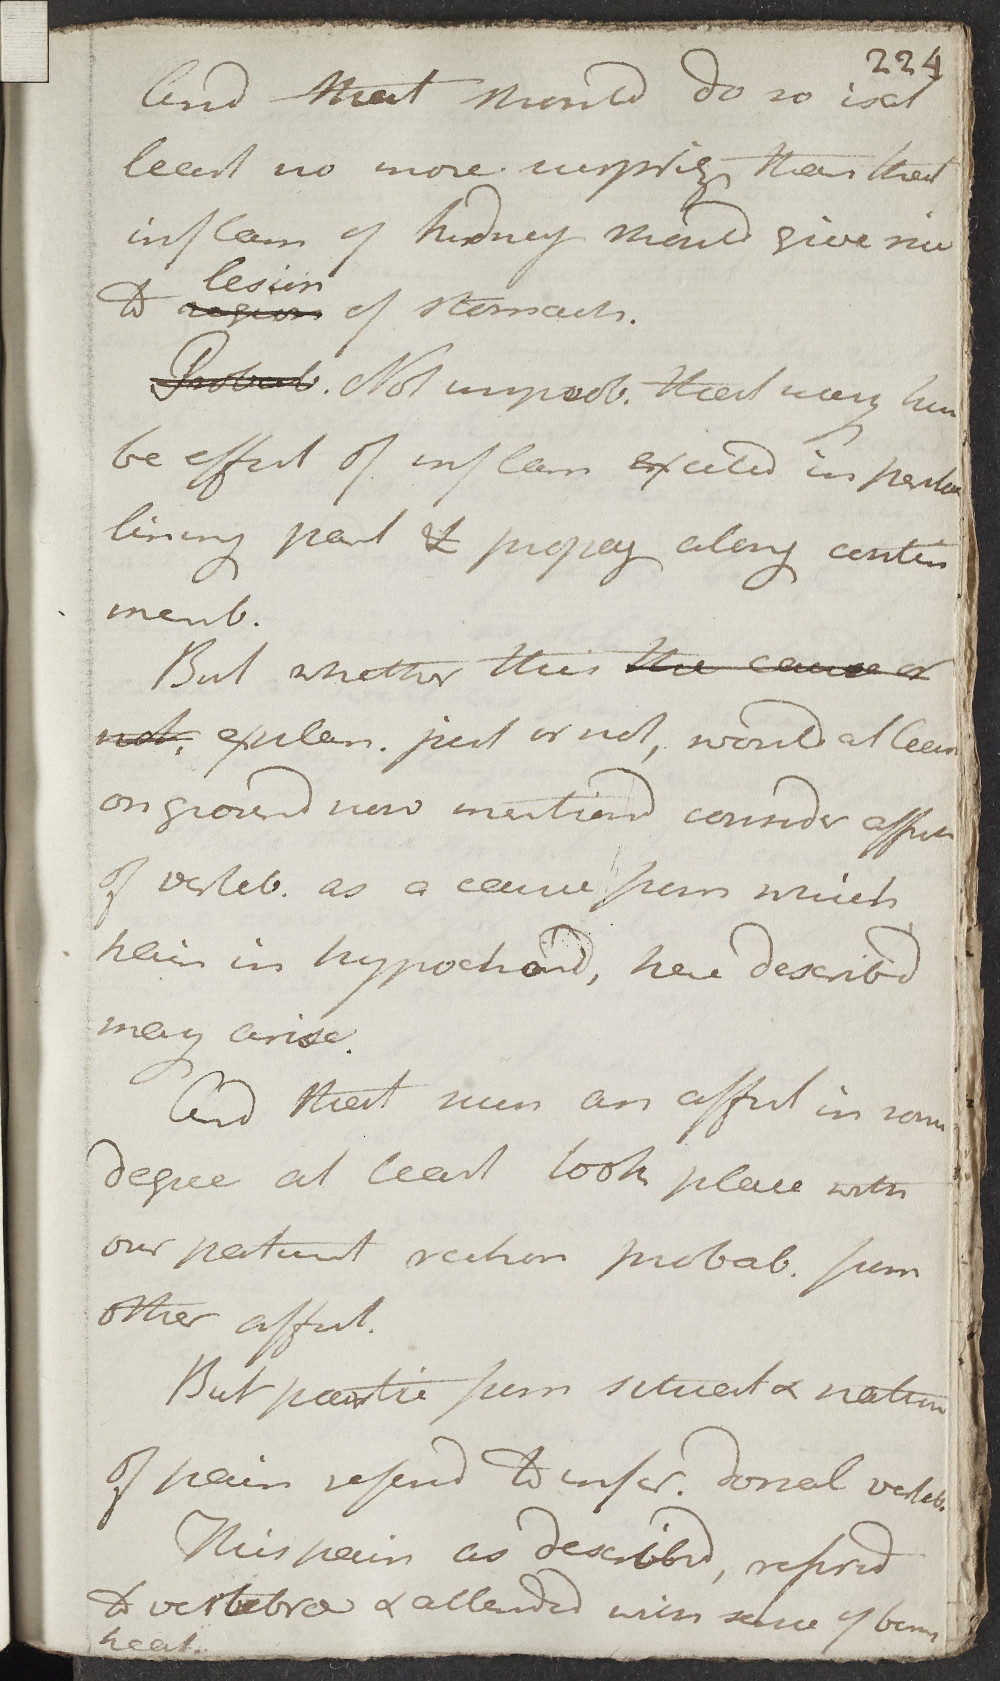 224
And that should do so is at
least no more surprisg than that
inflam of kidney should give rise
to region lesion of stomach.
Probab. Not improb. that may here
be effect of inflam excited in
lining part & propag along contin
memb.
But whether this the cause or
not, explan. just or not, would at least
on ground now mentiond consider affect
of verteb. as a cause from which
pain in hypochond, here describd
may arise.
And that such an affect in some
degree at least took place with
our patient reckon probab. from
other affect.
But partic from situat & nature
of pain referd to infer. dorsal verteb.
This pain as describbd, referd
to vertebrae & attended with sense of burng
heat.